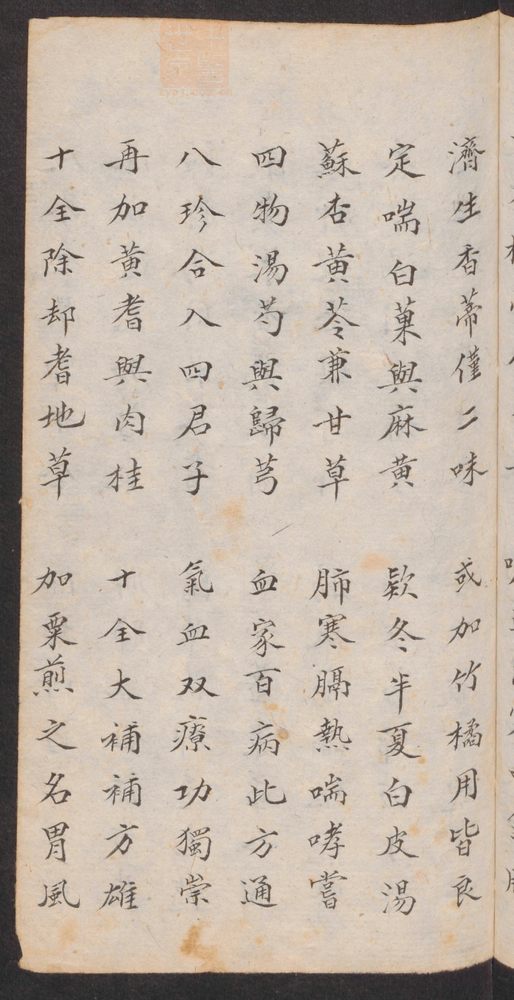 濟生香蒂僅二味　或加竹橘用皆良
定喘白菓與麻黃　欵冬半夏白皮湯
蘇杏黃芩兼甘草　肺寒膈熱喘哮嘗
四物湯芍與歸芎　血家百病此方通
八珍合入四君子　氣血双療功獨崇
再加黃耆與肉桂　十全大補補方雄
十全除却耆地草　加粟煎之名胃風